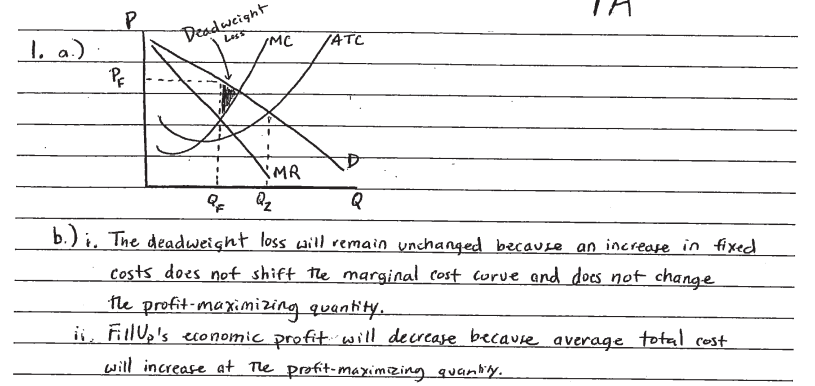 1A
P
Deadweight
Loss
MC
ATC
1. a.)
P_F
D
MR
Q_F
Q_2
Q
b.) i. The deadweight loss will remain unchanged because an increase in fixed
costs does not shift the marginal cost curve and does not change
the profit-maximizing quantity.
ii. FillUp's economic profit will decrease because average total cost
will increase at the profit-maximizing quantity.